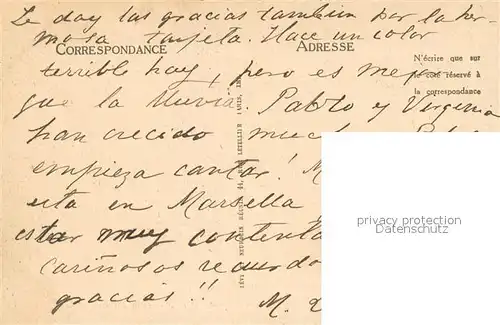 Le doy las gracias tambien por la her-
mosa tarjeta. Hace un color
CORRESPONDANCE
ADRESSE
terrible hoy, pero es mejor
N'écrire que sur
le côté réservé à
la correspondance
que la lluvia. Pablo y Virginia
han crecido
empieza cantar!
esta en Marsella
estar muy contenta
cariñosos recuerdo
gracias!!
M.
LÉVY ET NEURDEIN RÉUNIS, 44, RUE LETELLIER, PARIS
privacy protection
Datenschutz